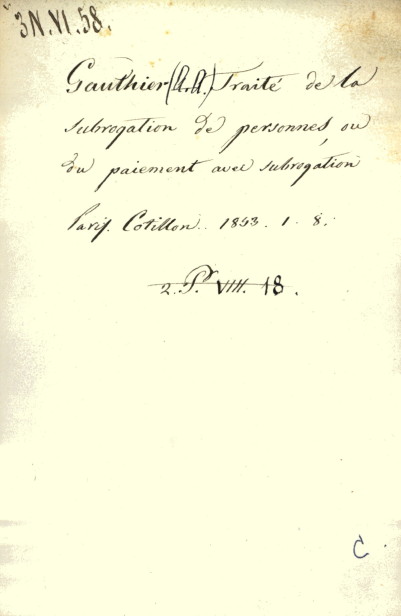 3N.VI.58.
Gauthier (A.A.) Traité de la
subrogation de personnes, ou
du paiement avec subrogation
Paris. Cotillon. 1853. 1. 8.
2. Pr VIII. 18.
C